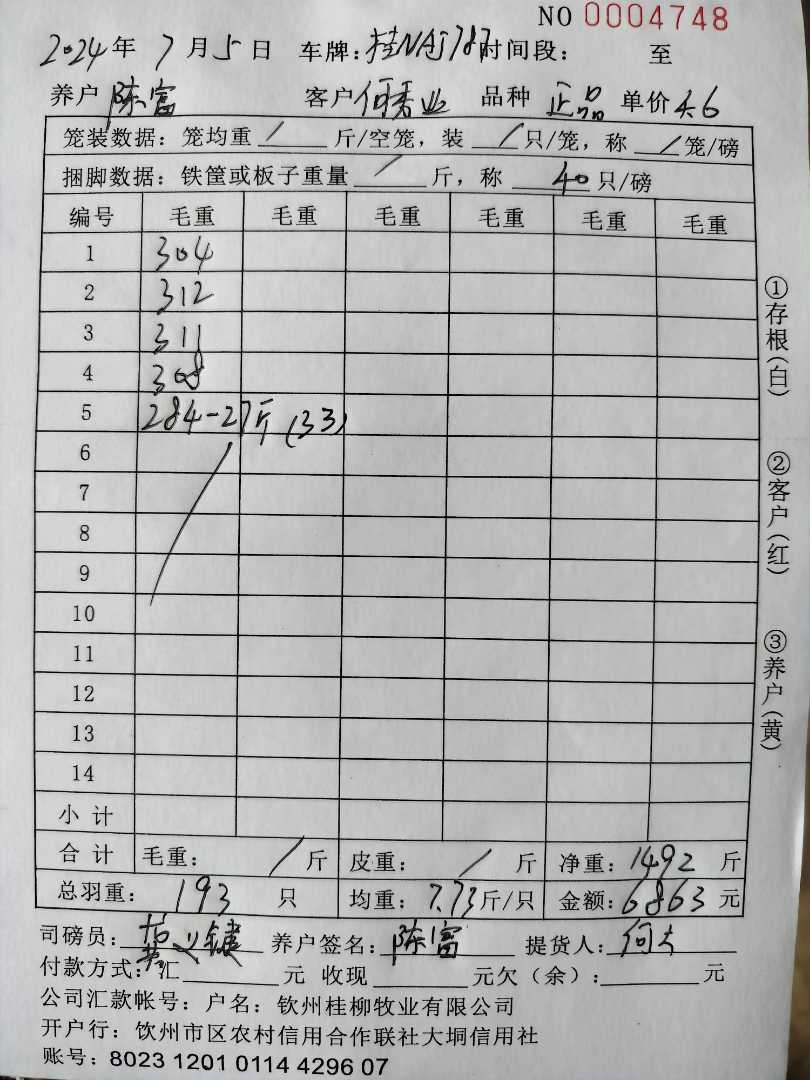 NO 0004748
2024年 7月5日 车牌:桂NAJ787 时间段: 至
养户 陈富 客户 何秀业 品种 正品 单价 4.6
笼装数据:笼均重 / 斤/空笼,装 / 只/笼,称 / 笼/磅
捆脚数据:铁筐或板子重量 / 斤,称 40 只/磅
编号 毛重 毛重 毛重 毛重 毛重 毛重
1 304
2 312
3 311
4 308
5 284-27斤(33)
6
7
8
9
10
11
12
13
14
小计
合计 毛重: / 斤 皮重: / 斤 净重:1492 斤
总羽重: 193 只 均重:7.73斤/只 金额:6863 元
司磅员: 养户签名:陈富 提货人:何
付款方式:汇 元 收现 元欠(余): 元
公司汇款帐号:户名:钦州桂柳牧业有限公司
开户行:饮州市区农村信用合作联社大垌信用社
账号:8023 1201 0114 4296 07
①存根(白)
②客户(红)
③养户(黄)